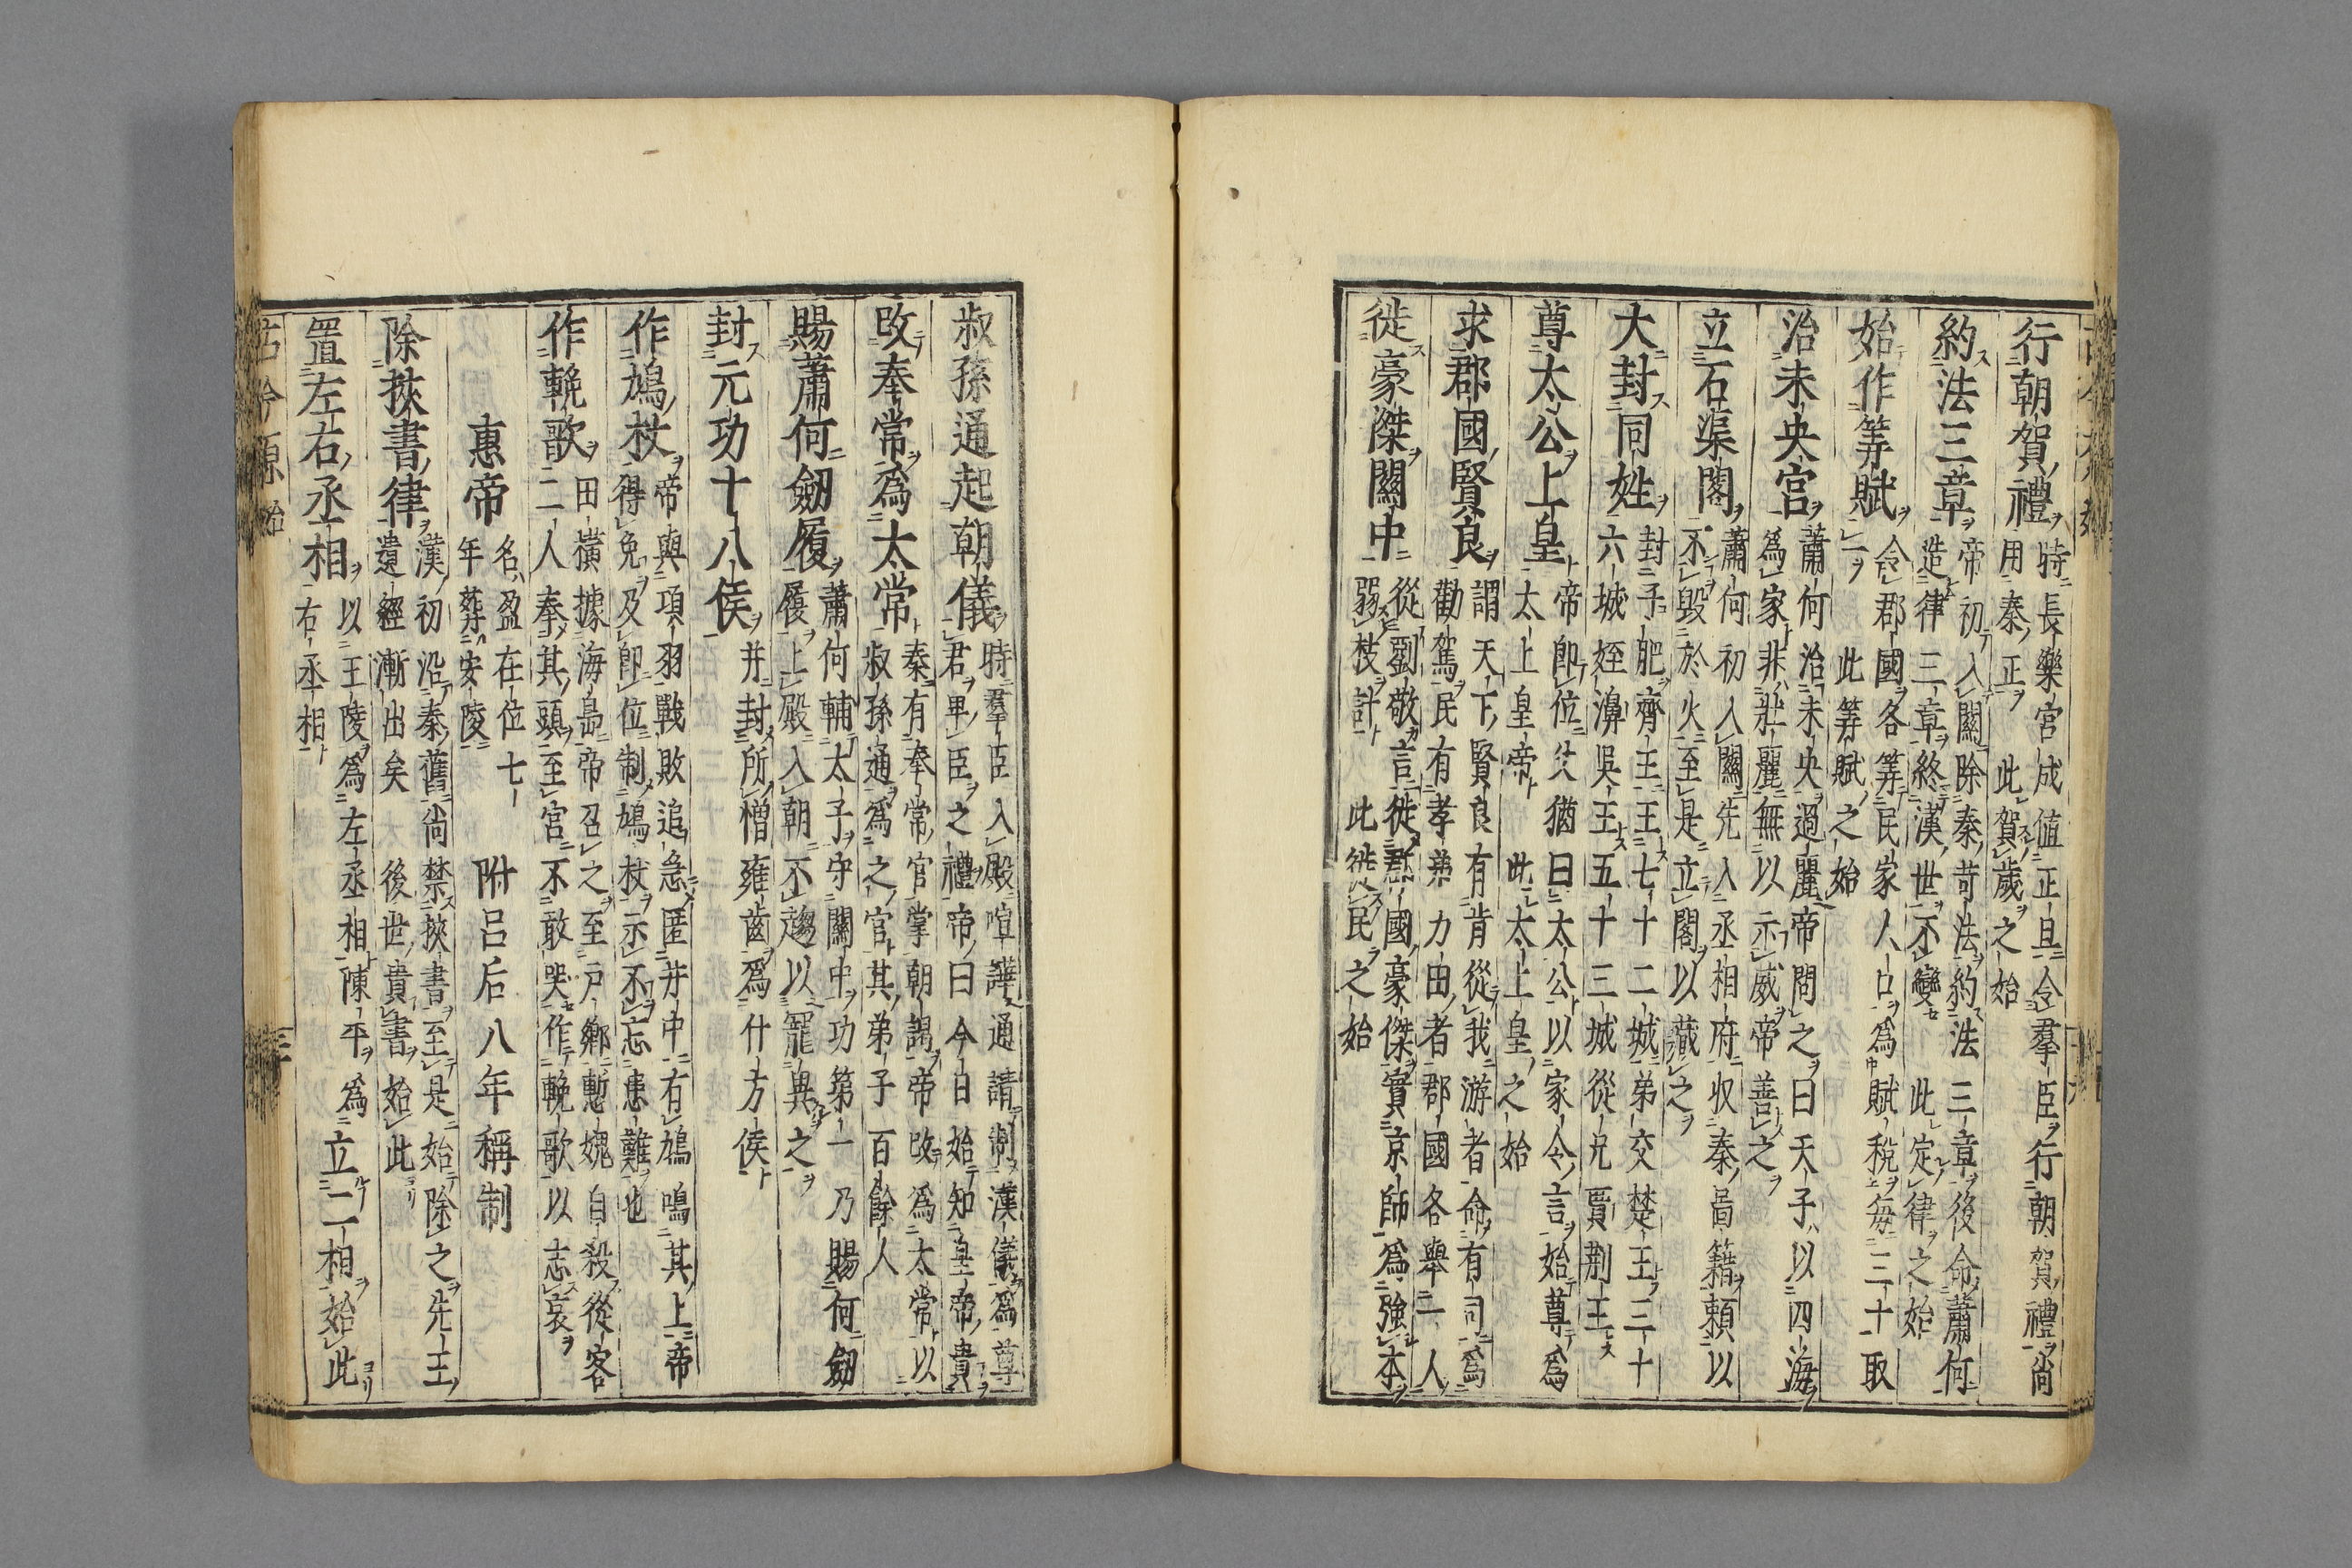 行朝賀禮時長樂宮成値正旦令羣臣行朝賀禮尚
用秦正此賀歲之始
約法三章帝初入關除秦苛法約法三章後命蕭何
造律三章終漢世不變此定律之始
始作筭賦令郡國各筭民家人口為賦税毎三十取
一此筭賦之始
治未央宮蕭何治未央過麗帝問之曰天子以四海
為家非壯麗無以示威帝善之
立石渠閣蕭何初入關先入丞相府収秦啚籍頼以
不毀於火至是立閣以藏之
大封同姓封子肥齊王王七十二城弟交楚王三十
六城姪濞吳王五十三城從兄賈荆王
尊太公上皇帝卽位父猶曰太公以家令言始尊為
太上皇帝此太上皇之始
求郡國賢良謂天下賢良有肯從我游者命有司為
勸駕民有孝弟力田者郡國各舉二人
徙豪傑關中從劉敬言徙郡國豪傑實京師為強本
弱枝計此徙民之始
叔孫通起朝儀時羣臣入殿喧譁通請制漢儀為尊
君卑臣之禮帝曰今日始知皇帝貴
改奉常為太常秦有奉常官掌朝謁帝改為太常以
叔孫通為之官其弟子百餘人
賜蕭何劒履蕭何輔太子守關中功第一乃賜何劒
履上殿入朝不趨以寵異之
封元功十八侯并封所憎雍齒為什方侯
作鳩杖帝與項羽戰敗追急匿井中有鳩鳴其上帝
得免及卽位制鳩杖示不忘患難也
作輓歌田橫據海島帝召之至尸鄉慙媿自殺從客
二人奉其頭至宮不敢哭作輓歌以志哀
惠帝名盈在位七
年葬安陵附呂后八年稱制
除挾書律漢初沿秦舊尚禁挾書至是始除之先王
遺經漸出矣後世貴書始此
置左右丞相以王陵為左丞相陳平為
右丞相立二相始此
古今原始